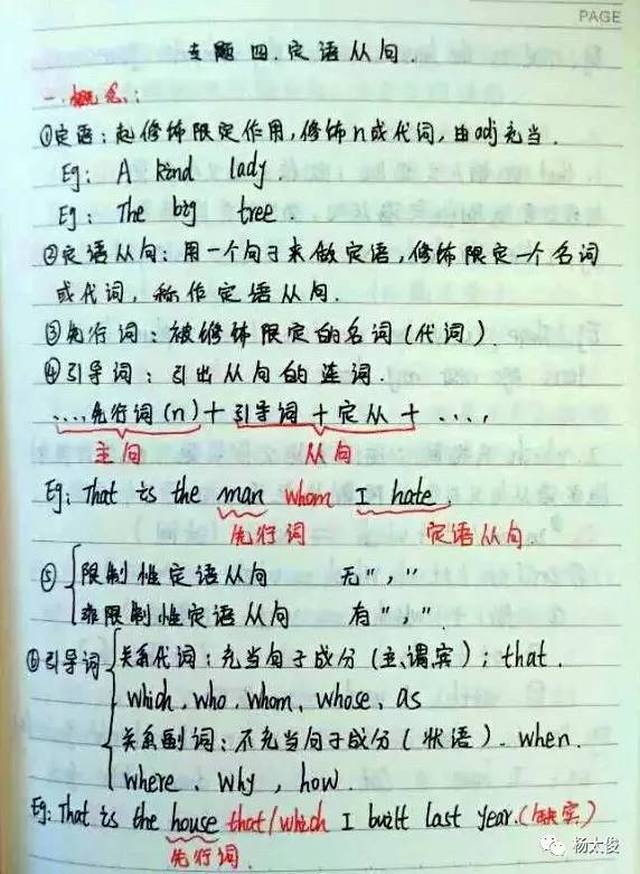 PAGE
专题四.定语从句.
一.概念:
①定语:起修饰限定作用,修饰n或代词,由adj充当.
Eg: A kind lady.
Eg: The big tree.
②定语从句:用一个句子来做定语,修饰限定一个名词
或代词,称作定语从句.
③先行词:被修饰限定的名词(代词).
④引导词:引出从句的连词.
....先行词(n)+引导词+定从+....
主句 从句
Eg: That is the man whom I hate
先行词 定语从句
⑤ 限制性定语从句 无","
非限制性定语从句 有",".
⑥引导词 关系代词:充当句子成分(主、谓宾);that.
which、who、whom、whose、as
关系副词:不充当句子成分(状语).when.
where、why,how.
Eg: That is the house that/which I built last year.(缺宾)
先行词.
杨太俊